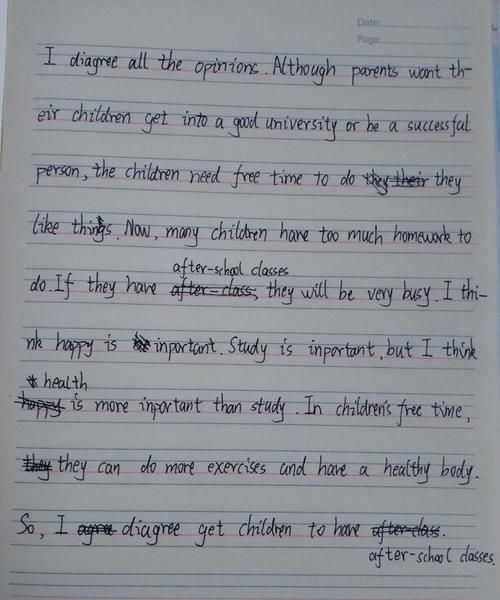 Date:
Page:
I diagree all the opinions. Although parents want th-
eir children get into a good university or be a successful
person, the children need free time to do they their they
like things. Now, many children have too much homework to
after-school classes
do. If they have after-class, they will be very busy. I thi-
nk happy is inportant. Study is inportant, but I think
health
happy is more inportant than study. In children's free time,
they they can do more exercises and have a healthy body.
So, I agree diagree get children to have after-class.
after-school classes.